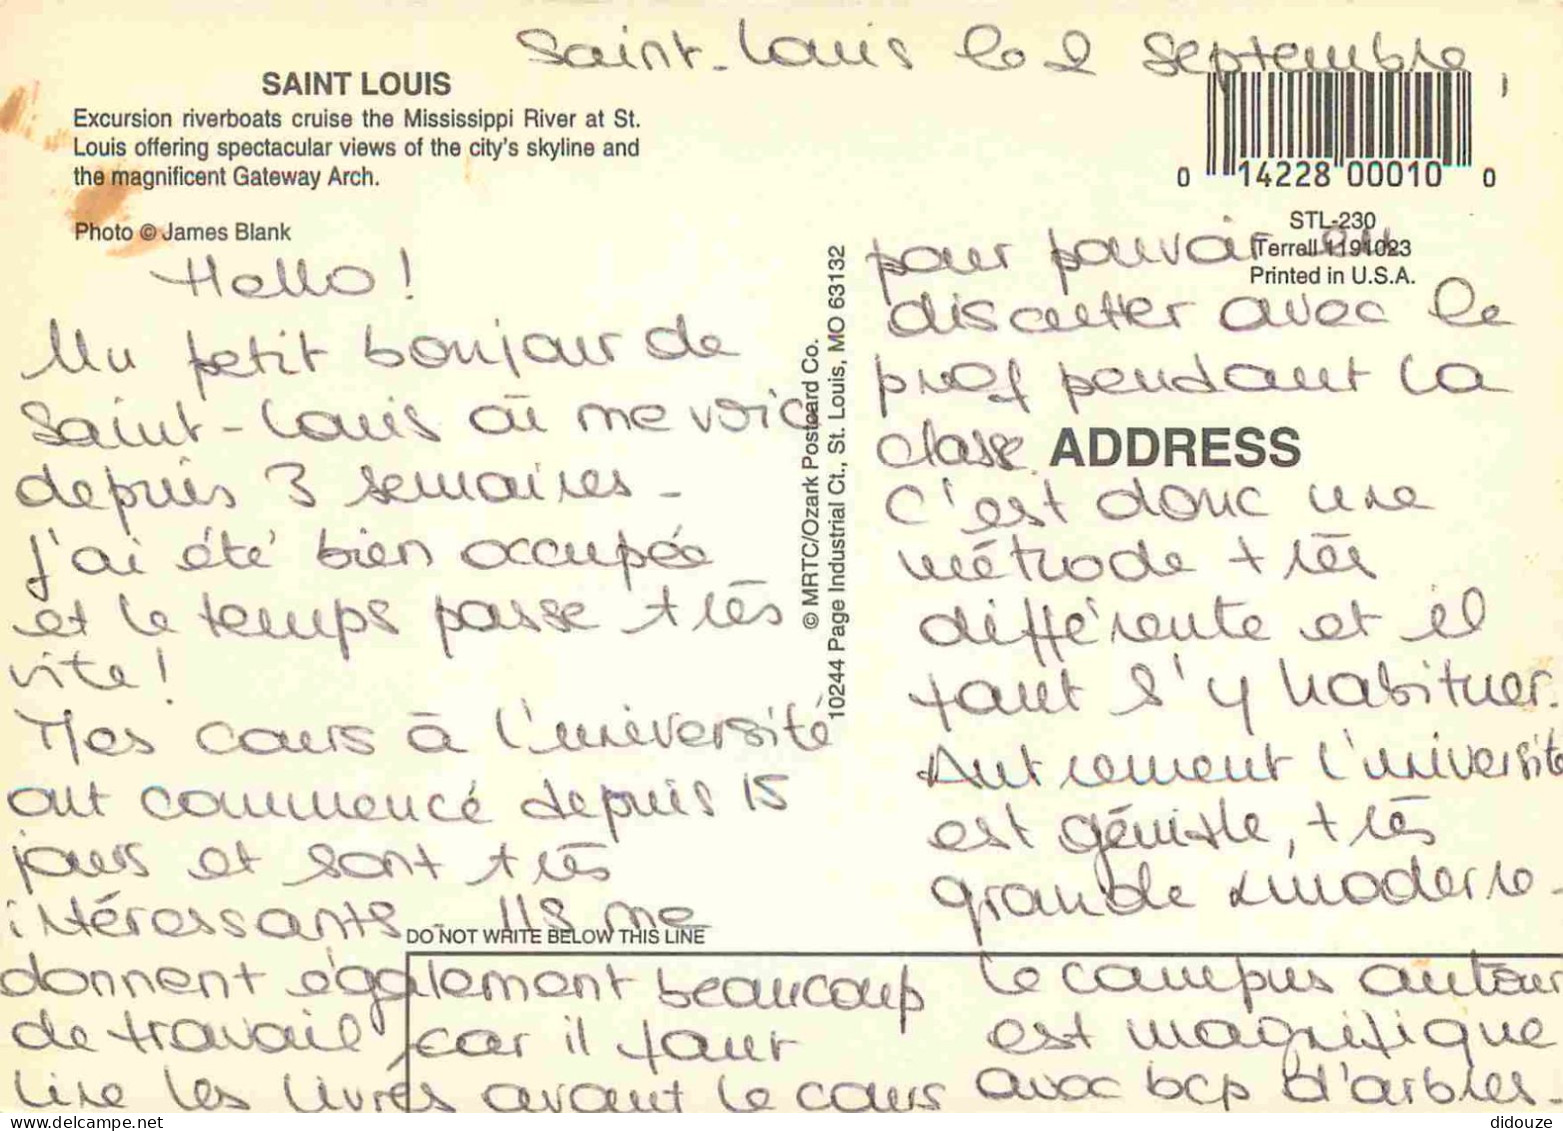 Saint-Louis le 2 Septembre,
SAINT LOUIS
Excursion riverboats cruise the Mississippi River at St.
Louis offering spectacular views of the city's skyline and
the magnificent Gateway Arch.
Photo © James Blank
0 14228 00010 0
STL-230
Terrell 1191023
Printed in U.S.A.
Hello!
Un petit bonjour de
Saint-Louis où me voici
depuis 3 semaines -
J'ai été bien occupée
et le temps passe très
vite!
Mes cours à l'université
ont commencé depuis 15
jours et sont très
intéressants - Ils me
donnent également beaucoup
de travail, car il faut
lire les livres avant le cours
© MRTC/Ozark Postcard Co.
10244 Page Industrial Ct., St. Louis, MO 63132
pour pouvoir en
discutter avec le
prof pendant la
classe.
ADDRESS
C'est donc une
méthode très
différente et il
faut s'y habituer.
Autrement l'université
est géniale, très
grande & moderne -
DO NOT WRITE BELOW THIS LINE
Le campus autour
est magnifique
avec bcp d'arbres -
didouze